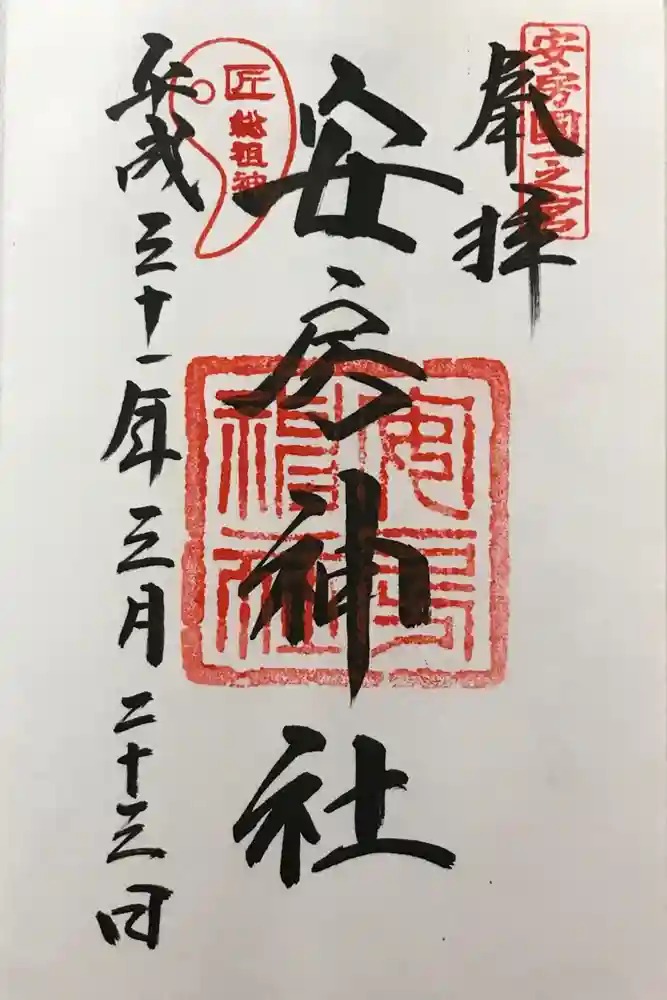 安房國一之宮
奉拝
安房神社
安房神社
匠
総祖神
平成三十一年三月二十三日